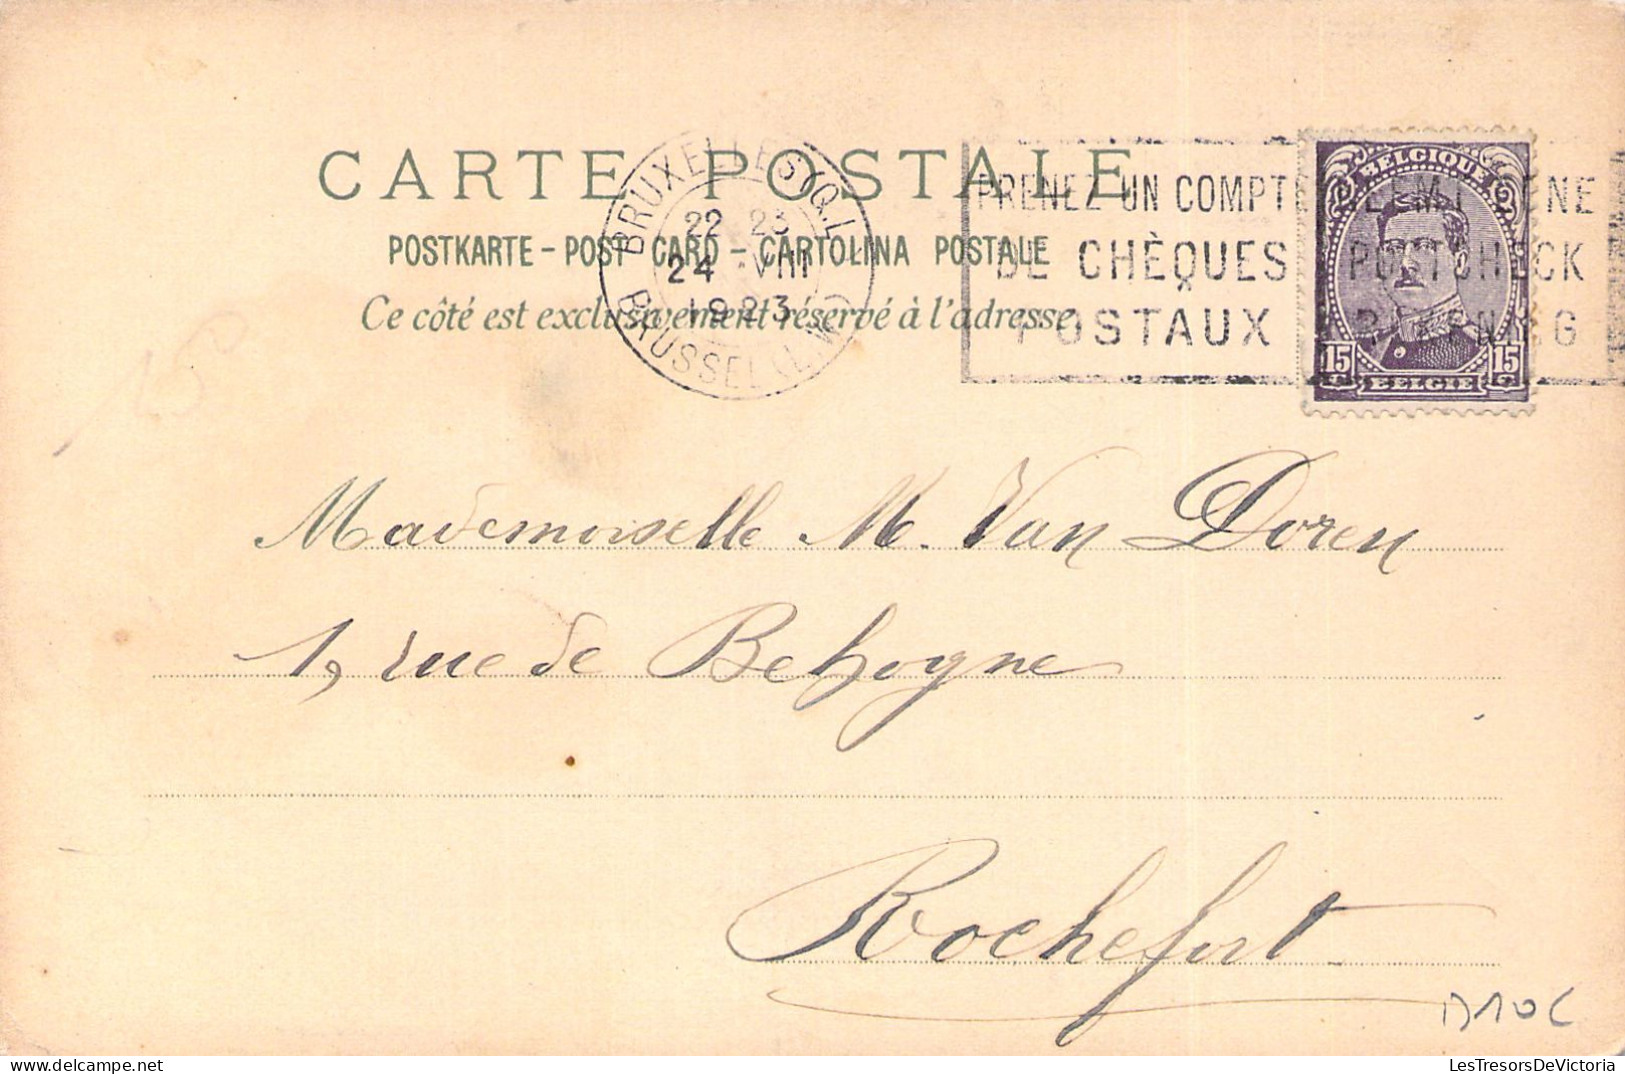 CARTE POSTALE
POSTKARTE - POST CARD - CARTOLINA POSTALE
Ce côté est exclusivement réservé à l'adresse
BRUXELLES (Q.L.
22 23
24 VIII
1923
BRUSSEL (L.W.)
PRENEZ UN COMPTE NEEMT EENE
DE CHÈQUES POSTCHECK
POSTAUX REKENING
BELGIQUE
15 15
BELGIE
15
Mademoiselle M. Van Doren
1, rue de Behogne
Rochefort
D10C
LesTresorsDeVictoria